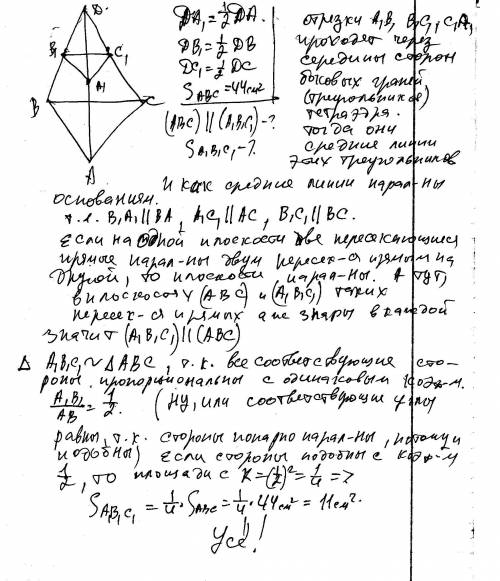 D
B₁ C₁
A₁
B C
A
DA₁ = ½ DA.
DB₁ = ½ DB
DC₁ = ½ DC
S_ABC = 44 см²
(ABC) || (A₁B₁C₁) - ?
S_A₁B₁C₁ - ?
отрезки A₁B₁ B₁C₁, C₁A₁
проходят через
середины сторон
боковых граней
(треугольников)
тетраэдра.
тогда они
средние линии
этих треугольников
и как средние линии парал-ны
основаниям.
т.е. B₁A₁ || BA, A₁C₁ || AC, B₁C₁ || BC.
Если на одной плоскости две пересекающиеся
прямые парал-ны двум перес-ся прямым на
другой, то плоскости парал-ны. А тут,
в плоскостях (ABC) и (A₁B₁C₁) таких
перес-ся прямых аж пары в каждой
значит (A₁B₁C₁) || (ABC)
Δ A₁B₁C₁ ~ Δ ABC, т.к. все соответствующие сто-
роны пропорциональны с одинаковым коэф-м.
A₁B₁/AB = ½. (Ну, или соответствующие углы
равны, т.к. стороны попарно парал-ны, потому и
подобны) Если стороны подобны с коэф-м
½, то площади с K = (½)² = ¼ =>
S_A₁B₁C₁ = ¼ · S_ABC = ¼ · 44 см² = 11 см².
Усё!